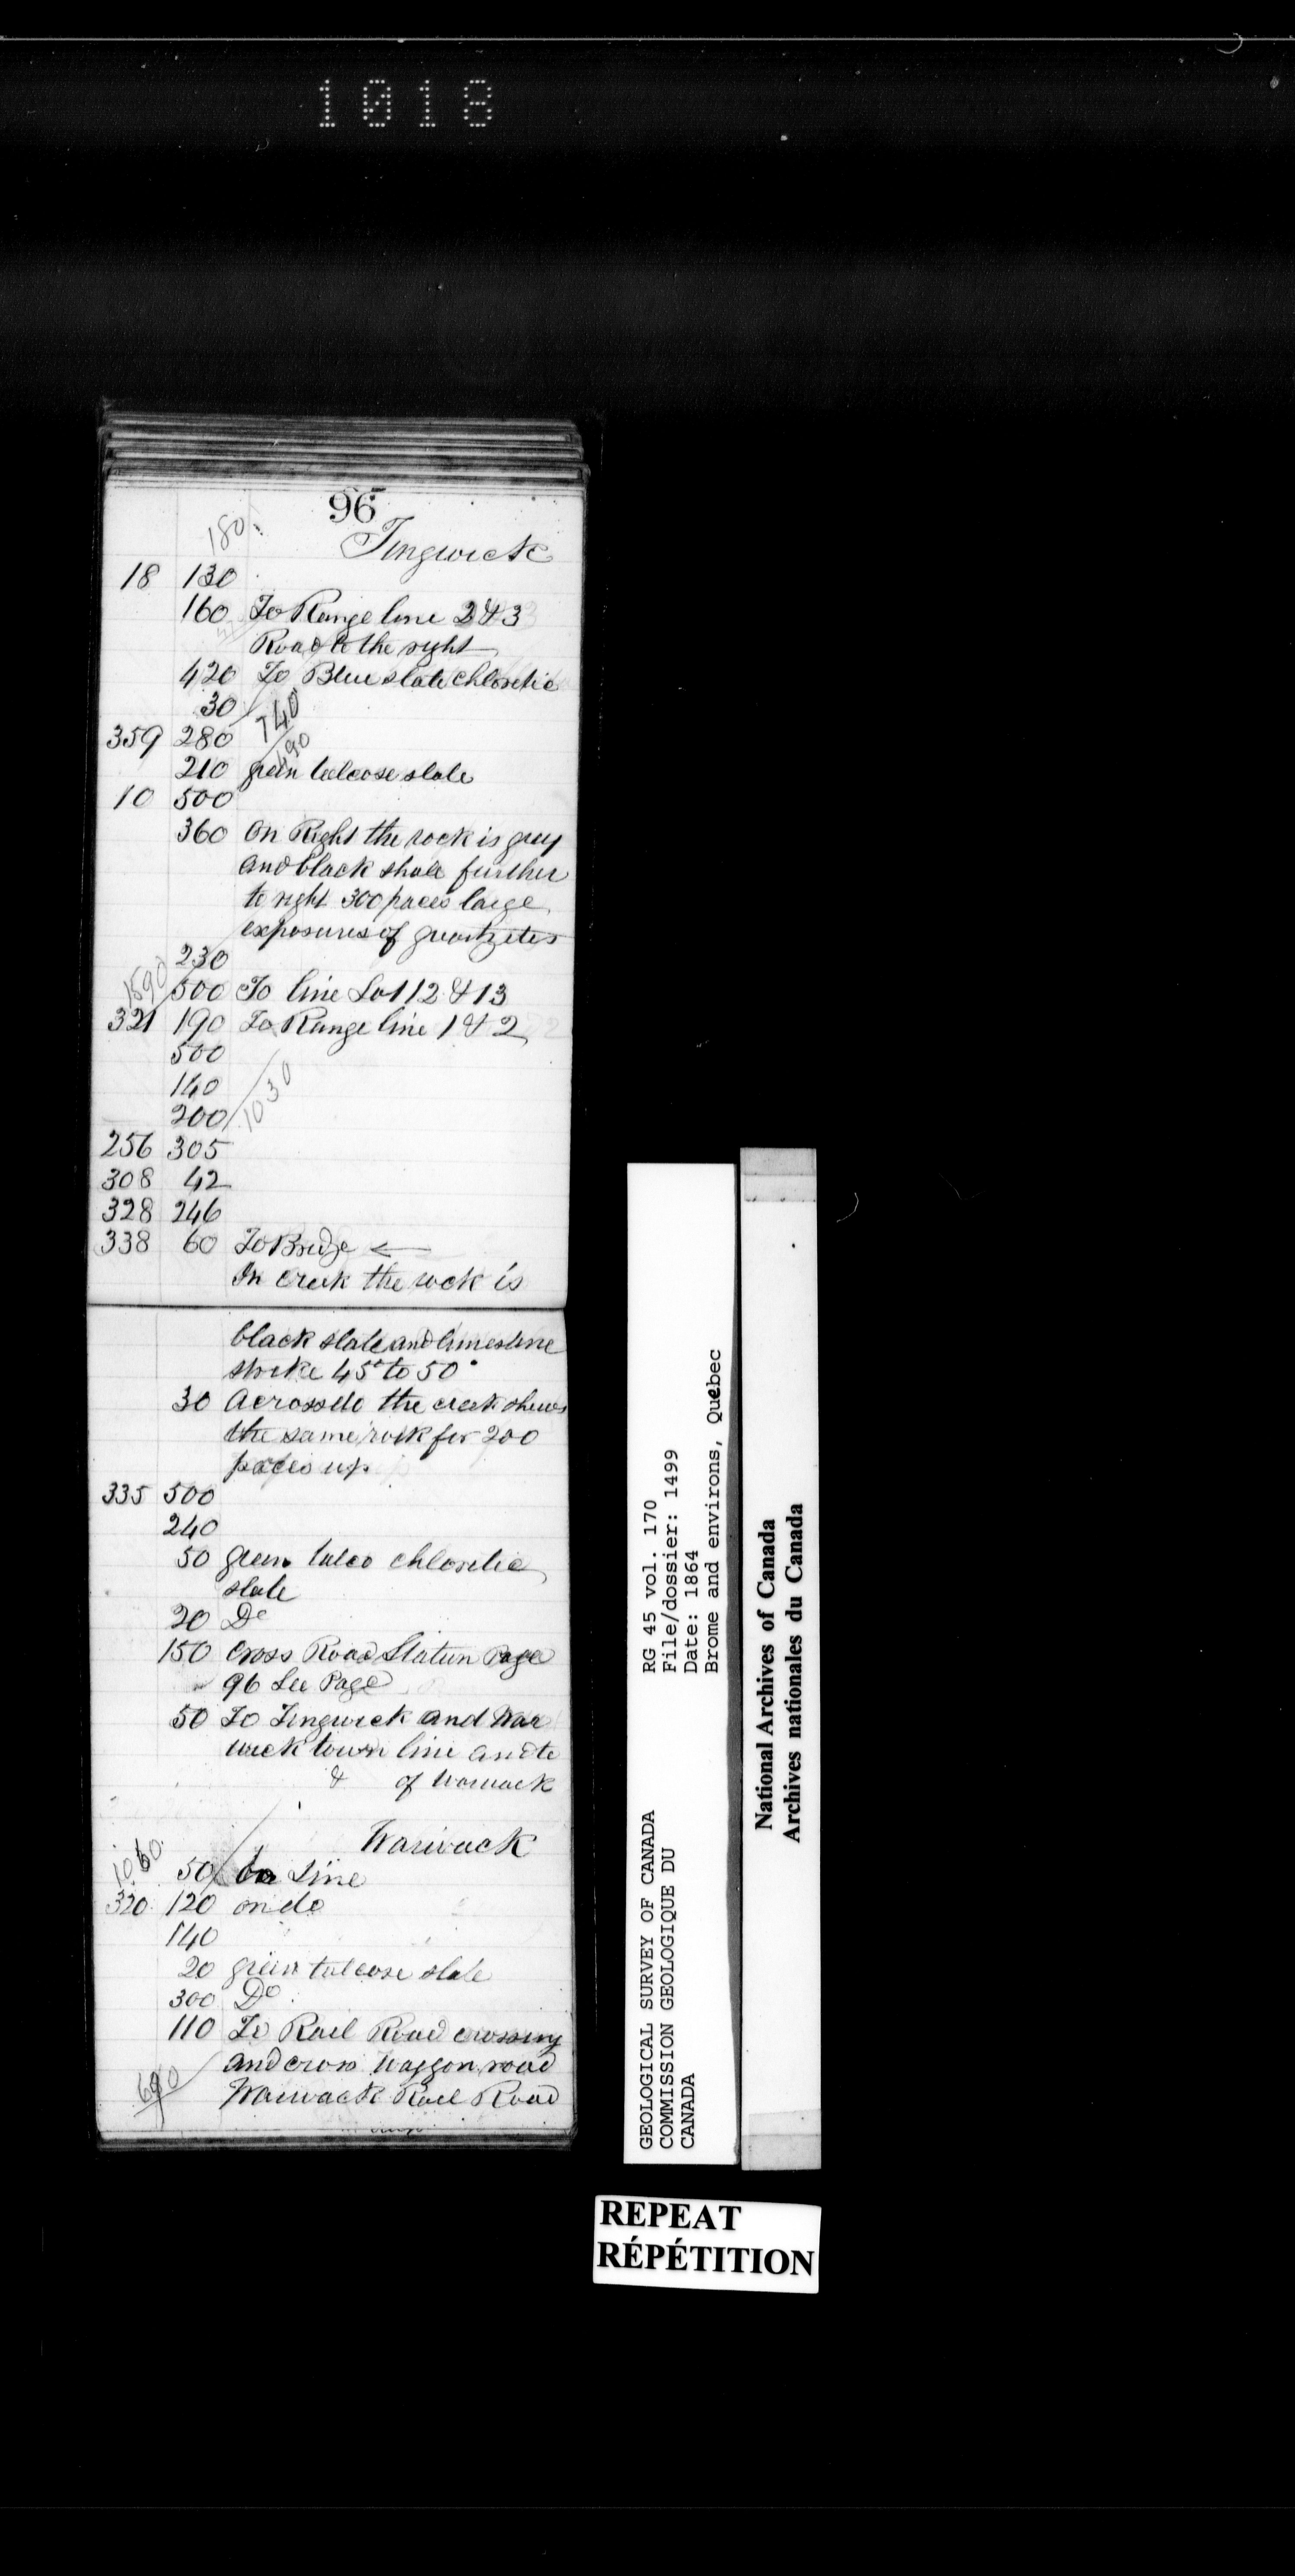 1018
96
180
Tingwick
18 130
160 To Range line 2 & 3
Road to the right
420 To Blue slate chloritic
30
740
359 280
190
210 green talcose slate
10 500
360 On Right the rock is grey
and black shale further
to right 300 paces large
exposures of quartzites
230
1590
500 To line Lot 12 & 13
321 190 To Range line 1 & 2
500
140
200 1030
256 305
308 42
328 246
338 60 To Bridge ←
In creek the rock is
black slate and limestone
strike 45° to 50°
30 Across do the creek shews
the same rock for 200
paces up
335 500
240
50 green talco chloritic
slate
20 Do
150 Cross Road Station Page
96 See Page
50 To Tingwick and War
wick town line and to
& of Warwick
Warwick
1060
50 Line
320 120 on do
140
20 green talcose slate
300 Do
110 To Rail Road crossing
and cross waggon road
690
Warwick Rail Road
GEOLOGICAL SURVEY OF CANADA
COMMISSION GEOLOGIQUE DU
CANADA
RG 45 vol. 170
File/dossier: 1499
Date: 1864
Brome and environs, Quebec
National Archives of Canada
Archives nationales du Canada
REPEAT
RÉPÉTITION